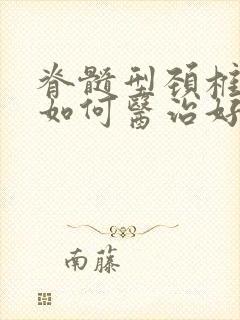 脊髓型颈柱
如何醫治好
南藤